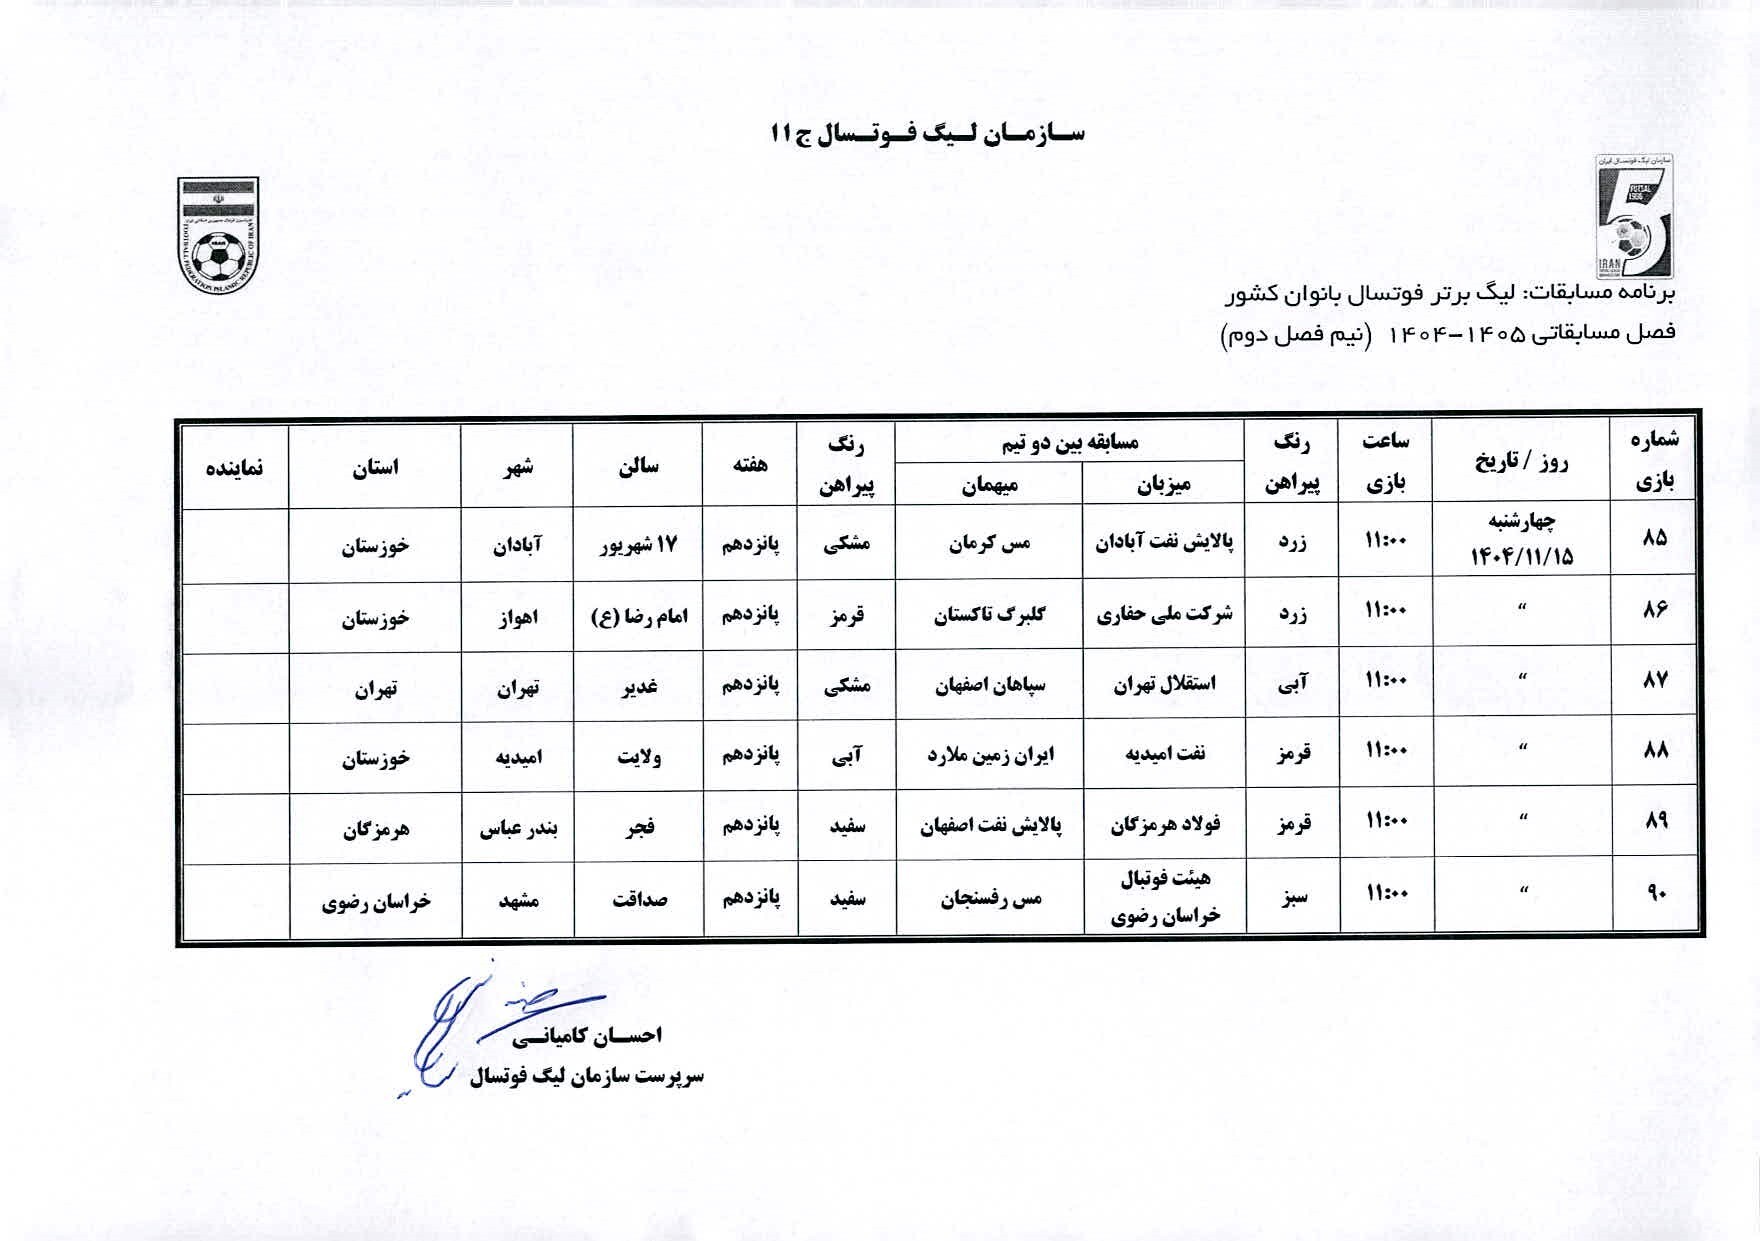 سازمان لیگ فوتسال ج ۱۱
سازمان لیگ فوتسال ایران
FUTSAL
5
IRAN
IRAN
FOOTBALL FEDERATION ISLAMIC REPUBLIC OF IRAN
برنامه مسابقات: لیگ برتر فوتسال بانوان کشور
فصل مسابقاتی ۱۴۰۵-۱۴۰۴ (نیم فصل دوم)
شماره بازی | روز / تاریخ | ساعت بازی | رنگ پیراهن | مسابقه بین دو تیم | رنگ پیراهن | هفته | سالن | شهر | استان | نماینده
میزبان | میهمان
۸۵ | چهارشنبه ۱۴۰۴/۱۱/۱۵ | ۱۱:۰۰ | زرد | پالایش نفت آبادان | مس کرمان | مشکی | پانزدهم | ۱۷ شهریور | آبادان | خوزستان
۸۶ | “ | ۱۱:۰۰ | زرد | شرکت ملی حفاری | گلبرگ تاکستان | قرمز | پانزدهم | امام رضا (ع) | اهواز | خوزستان
۸۷ | “ | ۱۱:۰۰ | آبی | استقلال تهران | سپاهان اصفهان | مشکی | پانزدهم | غدیر | تهران | تهران
۸۸ | “ | ۱۱:۰۰ | قرمز | نفت امیدیه | ایران زمین ملارد | آبی | پانزدهم | ولایت | امیدیه | خوزستان
۸۹ | “ | ۱۱:۰۰ | قرمز | فولاد هرمزگان | پالایش نفت اصفهان | سفید | پانزدهم | فجر | بندر عباس | هرمزگان
۹۰ | “ | ۱۱:۰۰ | سبز | هیئت فوتبال خراسان رضوی | مس رفسنجان | سفید | پانزدهم | صداقت | مشهد | خراسان رضوی
احسان کامیانی
سرپرست سازمان لیگ فوتسال